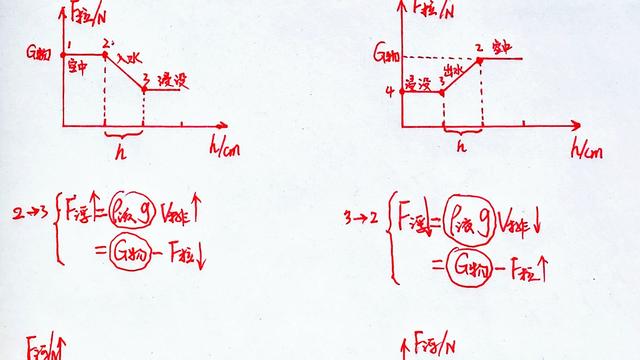 F拉/N
G物
1
2
空中
入水
3
浸没
h
h/cm
F拉/N
G物
2
空中
出水
4
浸没
3
h
h/cm
2→3 { F浮↑=ρ液g V排↑
=G物-F拉↓
3→2 { F浮↓=ρ液g V排↓
=G物-F拉↑
F浮/N
F浮/N